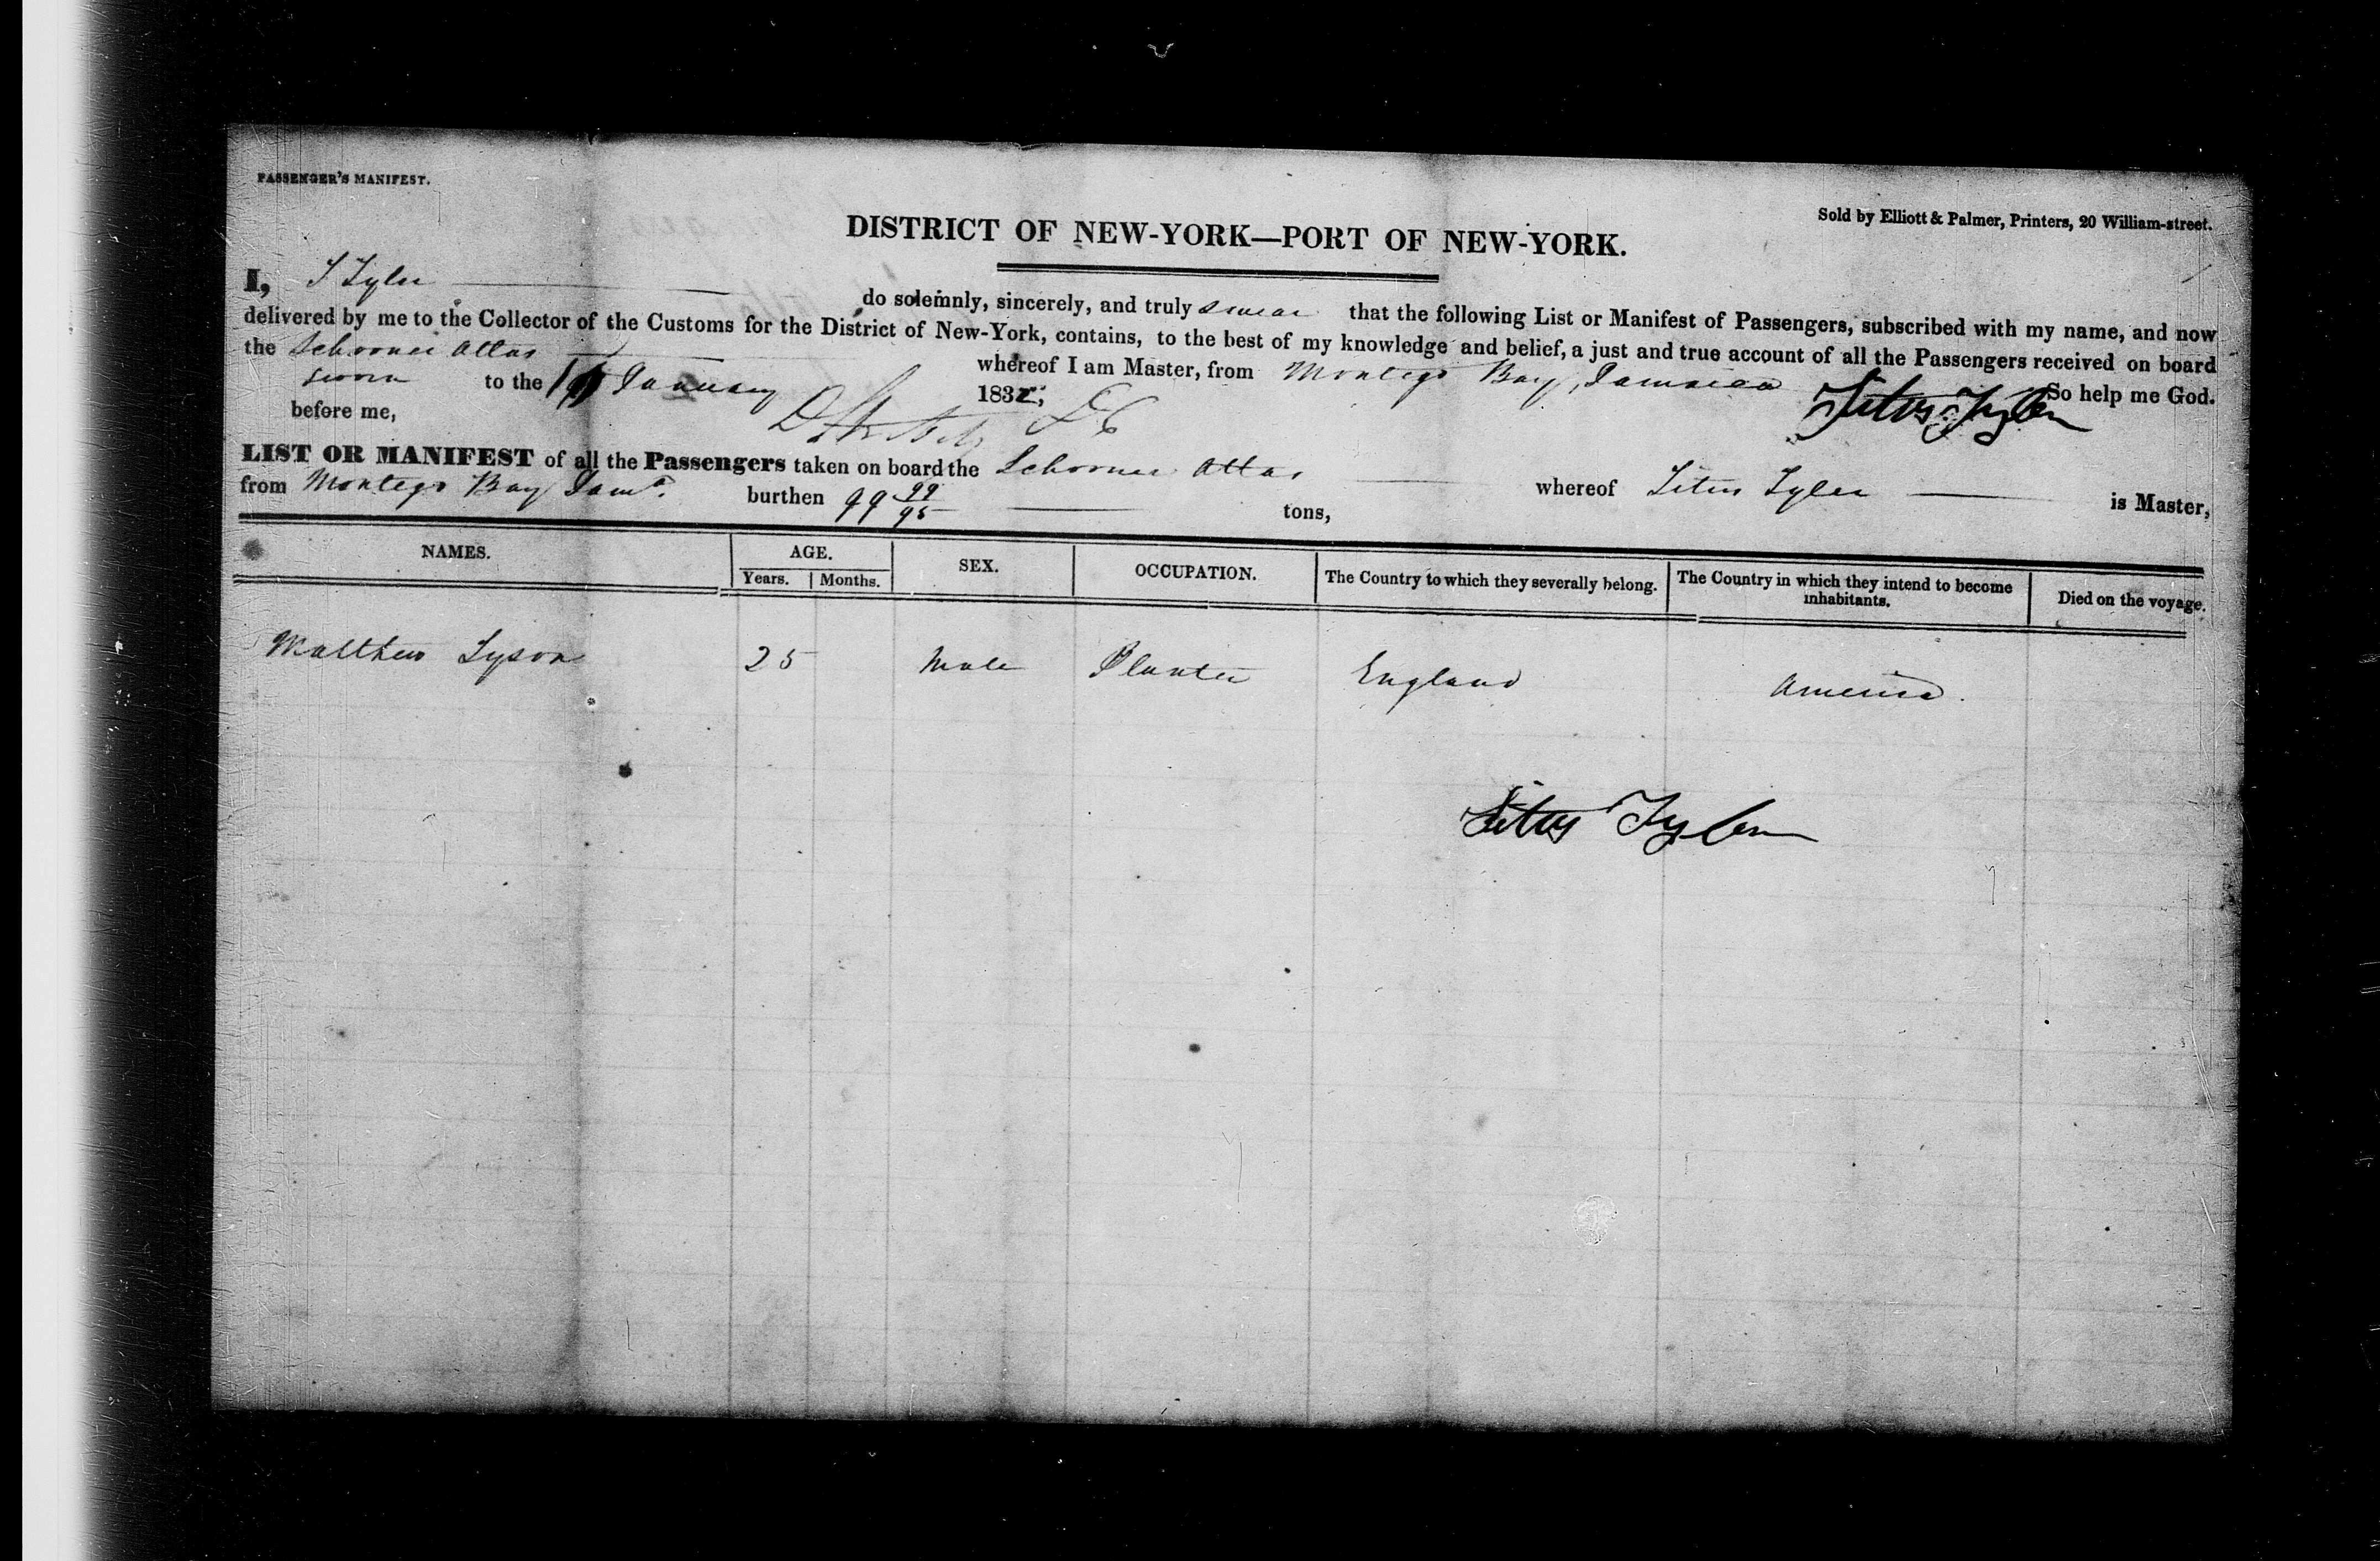 PASSENGER'S MANIFEST.
Sold by Elliott & Palmer, Printers, 20 William-street.
DISTRICT OF NEW-YORK—PORT OF NEW-YORK.
I, T Tyler do solemnly, sincerely, and truly swear that the following List or Manifest of Passengers, subscribed with my name, and now
delivered by me to the Collector of the Customs for the District of New-York, contains, to the best of my knowledge and belief, a just and true account of all the Passengers received on board
the Schooner Attas whereof I am Master, from Montego Bay, Jamaica So help me God.
sworn to the January 1832; Titus Tyler
before me,
LIST OR MANIFEST of all the Passengers taken on board the Schooner Attas whereof Titus Tyler is Master,
from Montego Bay Jama. burthen 99 99/95 tons,
NAMES. AGE. SEX. OCCUPATION. The Country to which they severally belong. The Country in which they intend to become inhabitants. Died on the voyage.
Years. Months.
Matthew Tyson 25 Male Planter England America.
Titus Tyler